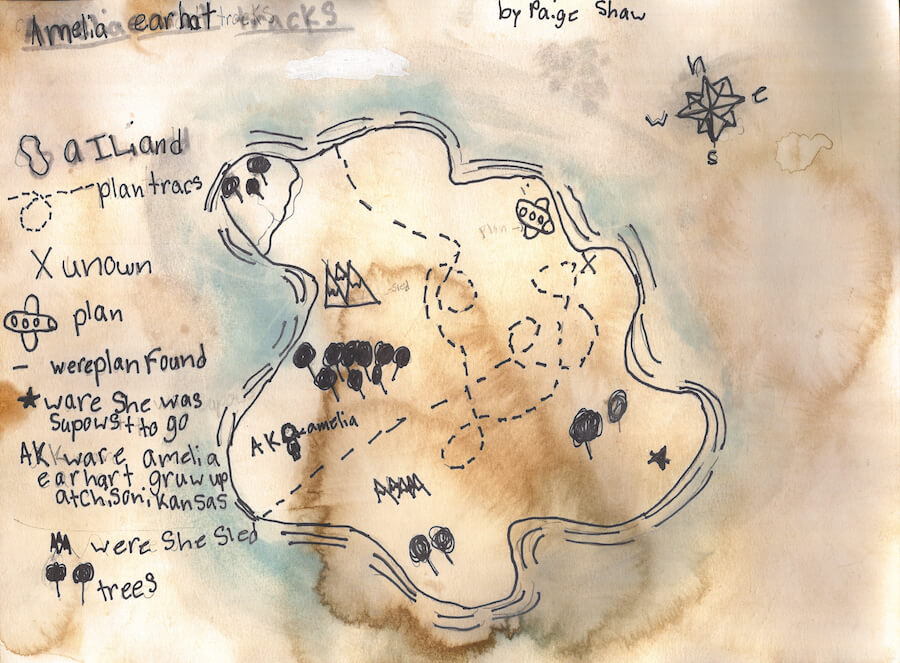 Amelia earhart tracks
by Paige Shaw
n
e
w
s
a ILiand
plan tracs
X unown
plan
- wereplan Found
ware She was
Supowst to go
AK ware amelia
earhart gruw up
atchison, kansas
were She Sled
trees
plan
X
Sled
AK amelia